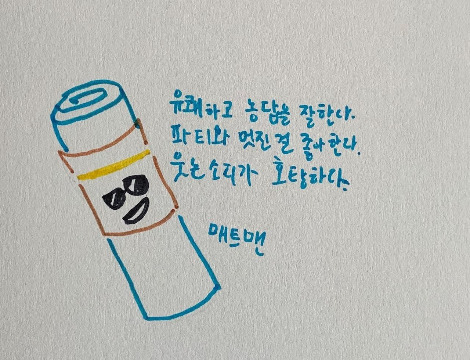 유쾌하고 농담을 잘한다.
파티와 멋진 걸 좋아한다.
웃는 소리가 호탕하다.
매트맨